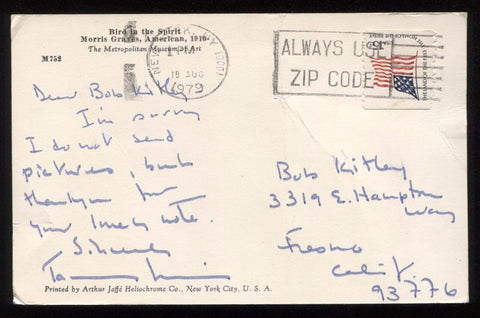 Bird in the Spirit
Morris Graves, American, 1910-
The Metropolitan Museum of Art
M752
NEW YORK, NY 10001
PM
18 AUG
1979
ALWAYS USE
ZIP CODE
15c
Dear Bob Kitley
I'm sorry
I do not send
pictures, but
thankyou for
your lovely note.
Sincerely
Bob Kitley
3319 E. Hampton
Way
Fresno
Calif.
93776
Printed by Arthur Jaffé Heliochrome Co., New York City, U. S. A.